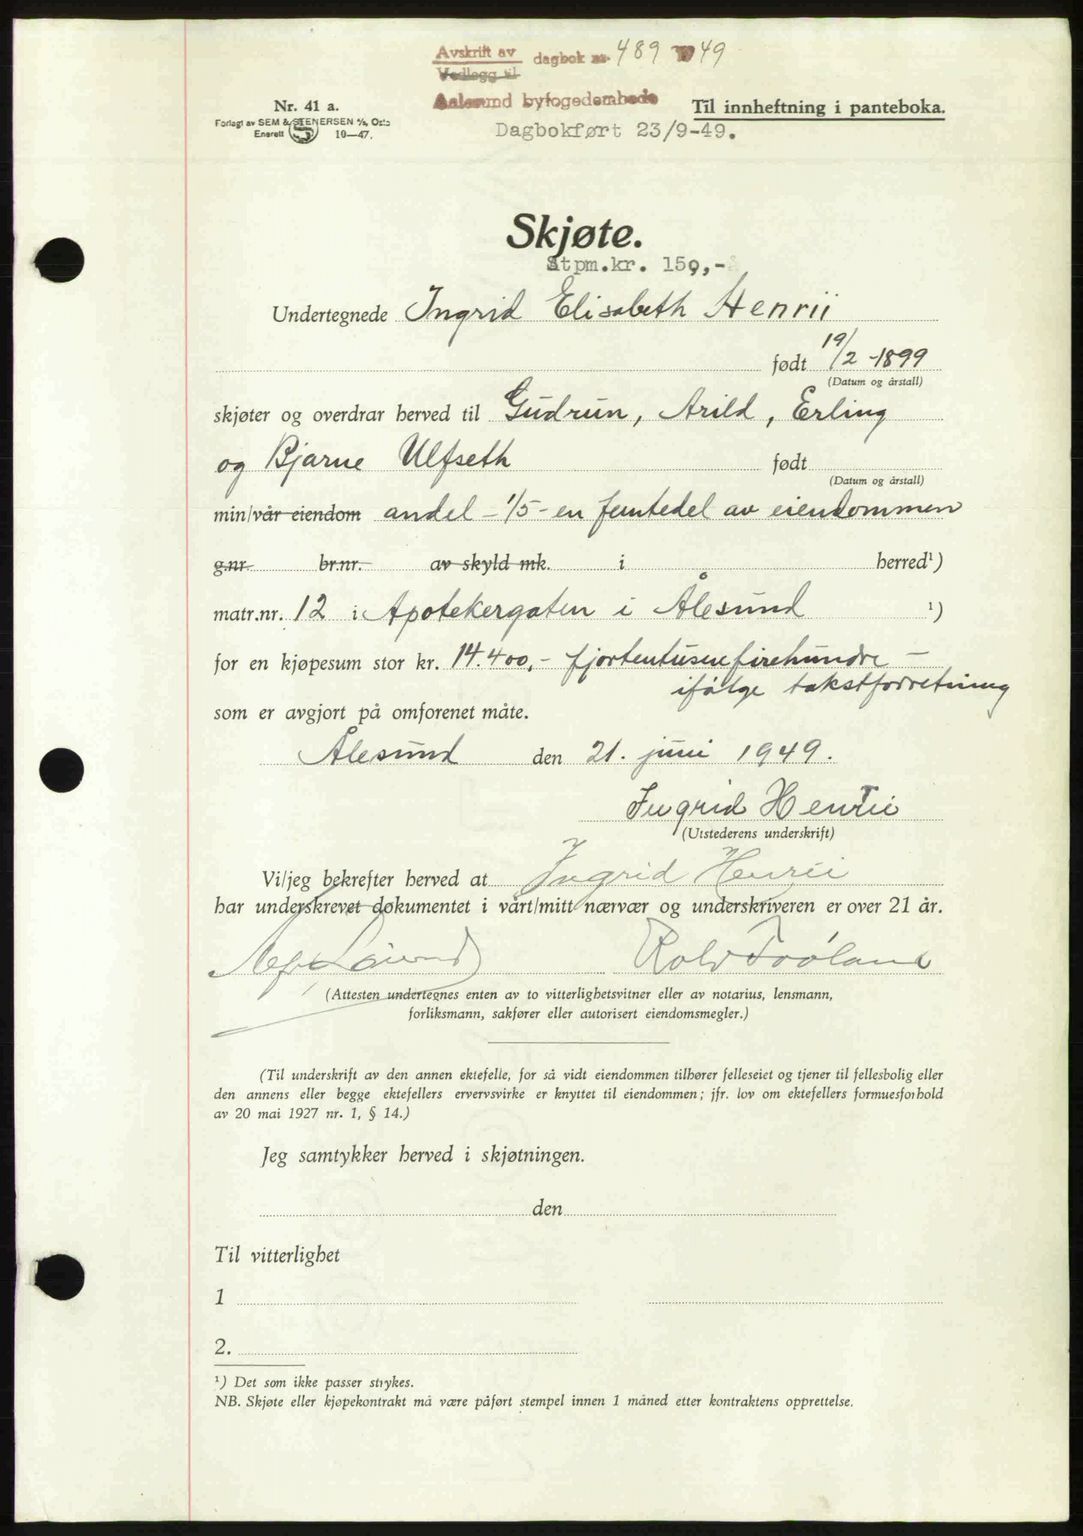 Avskrift av
Vedlegg til
dagbok nr. 489 1949
Aalesund byfogedembede
Nr. 41 a.
Til innheftning i panteboka.
Forlagt av SEM & STENERSEN A/S, Oslo
Enerett S 10—47.
Dagbokført 23/9-49.
Skjøte.
Stpm.kr. 150,-
Undertegnede Ingrid Elisabeth Henrii
født 19/2-1899
(Datum og årstall)
skjøter og overdrar herved til Gudrun, Arild, Erling
og Bjarne Ulfseth født
(Datum og årstall)
min/vår eiendom andel - 1/5 - en femtedel av eiendommen
g.nr. br.nr. av skyld mk. i herred¹)
matr.nr. 12 i Apotekergaten i Ålesund ¹)
for en kjøpesum stor kr. 14.400,- fjortentusenfirehundre —
ifølge takstforretning
som er avgjort på omforenet måte.
Ålesund den 21. juni 1949.
Ingrid Henrii
(Utstederens underskrift)
Vi/jeg bekrefter herved at Ingrid Henrii
har underskrevet dokumentet i vårt/mitt nærvær og underskriveren er over 21 år.
Rolv
(Attesten undertegnes enten av to vitterlighetsvitner eller av notarius, lensmann,
forliksmann, sakfører eller autorisert eiendomsmegler.)
(Til underskrift av den annen ektefelle, for så vidt eiendommen tilhører felleseiet og tjener til fellesbolig eller
den annens eller begge ektefellers ervervsvirke er knyttet til eiendommen; jfr. lov om ektefellers formuesforhold
av 20 mai 1927 nr. 1, § 14.)
Jeg samtykker herved i skjøtningen.
den
Til vitterlighet
1
2.
¹) Det som ikke passer strykes.
NB. Skjøte eller kjøpekontrakt må være påført stempel innen 1 måned etter kontraktens opprettelse.